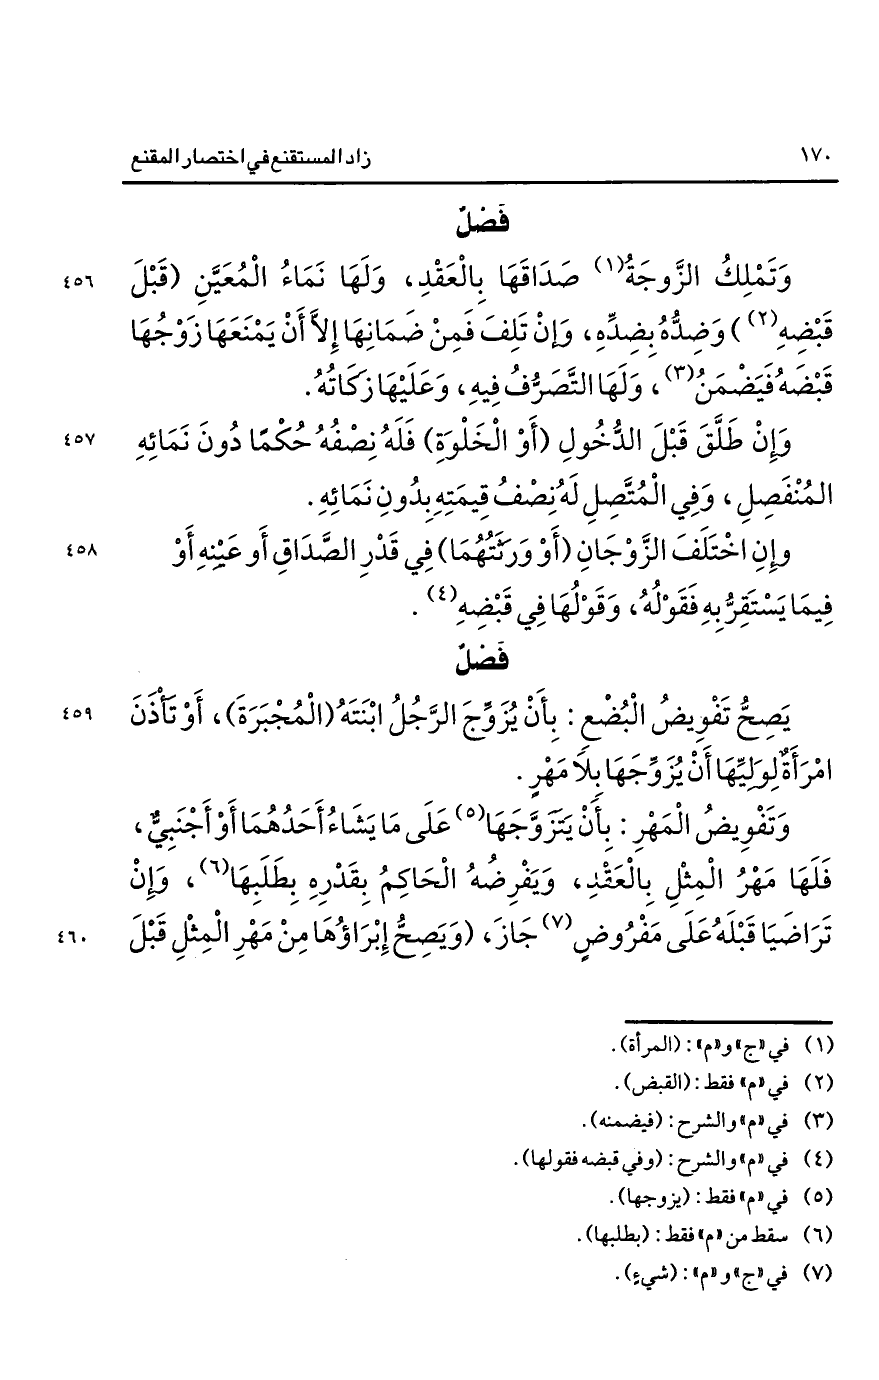 ١٧٠ زاد المستقنع في اختصار المقنع
فَصْلٌ
وَتَمْلِكُ الزَّوجَةُ(١) صَدَاقَهَا بِالْعَقْدِ، وَلَهَا نَمَاءُ الْمُعَيَّنِ (قَبْلَ ٤٥٦
قَبْضِهِ(٢)) وَضِدُّهُ بِضِدِّهِ، وَإِنْ تَلِفَ فَمِنْ ضَمَانِهَا إِلاَّ أَنْ يَمْنَعَهَا زَوْجُهَا
قَبْضَهُ فَيَضْمَنُ(٣)، وَلَهَا التَّصَرُّفُ فِيهِ، وَعَلَيْهَا زَكَاتُهُ.
وَإِنْ طَلَّقَ قَبْلَ الدُّخُولِ (أَوْ الْخَلْوَةِ) فَلَهُ نِصْفُهُ حُكْمًا دُونَ نَمَائِهِ ٤٥٧
المُنْفَصِلِ، وَفِي الْمُتَّصِلِ لَهُ نِصْفُ قِيمَتِهِ بِدُونِ نَمَائِهِ.
وإِنِ اخْتَلَفَ الزَّوْجَانِ (أَوْ وَرَثَتُهُمَا) فِي قَدْرِ الصَّدَاقِ أَو عَيْنِهِ أَوْ ٤٥٨
فِيمَا يَسْتَقِرُّ بِهِ فَقَوْلُهُ، وَقَوْلُهَا فِي قَبْضِهِ(٤).
فَصْلٌ
يَصِحُّ تَفْوِيضُ الْبُضْعِ: بِأَنْ يُزَوِّجَ الرَّجُلُ ابْنَتَهُ (الْمُجْبَرَةَ)، أَوْ تَأْذَنَ ٤٥٩
امْرَأَةٌ لِوَلِيِّهَا أَنْ يُزَوِّجَهَا بِلاَ مَهْرٍ.
وَتَفْوِيضُ الْمَهْرِ: بِأَنْ يَتَزَوَّجَهَا(٥) عَلَى مَا يَشَاءُ أَحَدُهُمَا أَوْ أَجْنَبِيٌّ،
فَلَهَا مَهْرُ الْمِثْلِ بِالْعَقْدِ، وَيَفْرِضُهُ الْحَاكِمُ بِقَدْرِهِ بِطَلَبِهَا(٦)، وَإِنْ
تَرَاضَيَا قَبْلَهُ عَلَى مَفْرُوضٍ(٧) جَازَ، (وَيَصِحُّ إِبْرَاؤُهَا مِنْ مَهْرِ الْمِثْلِ قَبْلَ ٤٦٠
(١) في «ج» و«م»: (المرأة).
(٢) في «م» فقط: (القبض).
(٣) في «م» والشرح: (فيضمنه).
(٤) في «م» والشرح: (وفي قبضه فقولها).
(٥) في «م» فقط: (يزوجها).
(٦) سقط من «م» فقط: (بطلبها).
(٧) في «ج» و«م»: (شيءٍ).